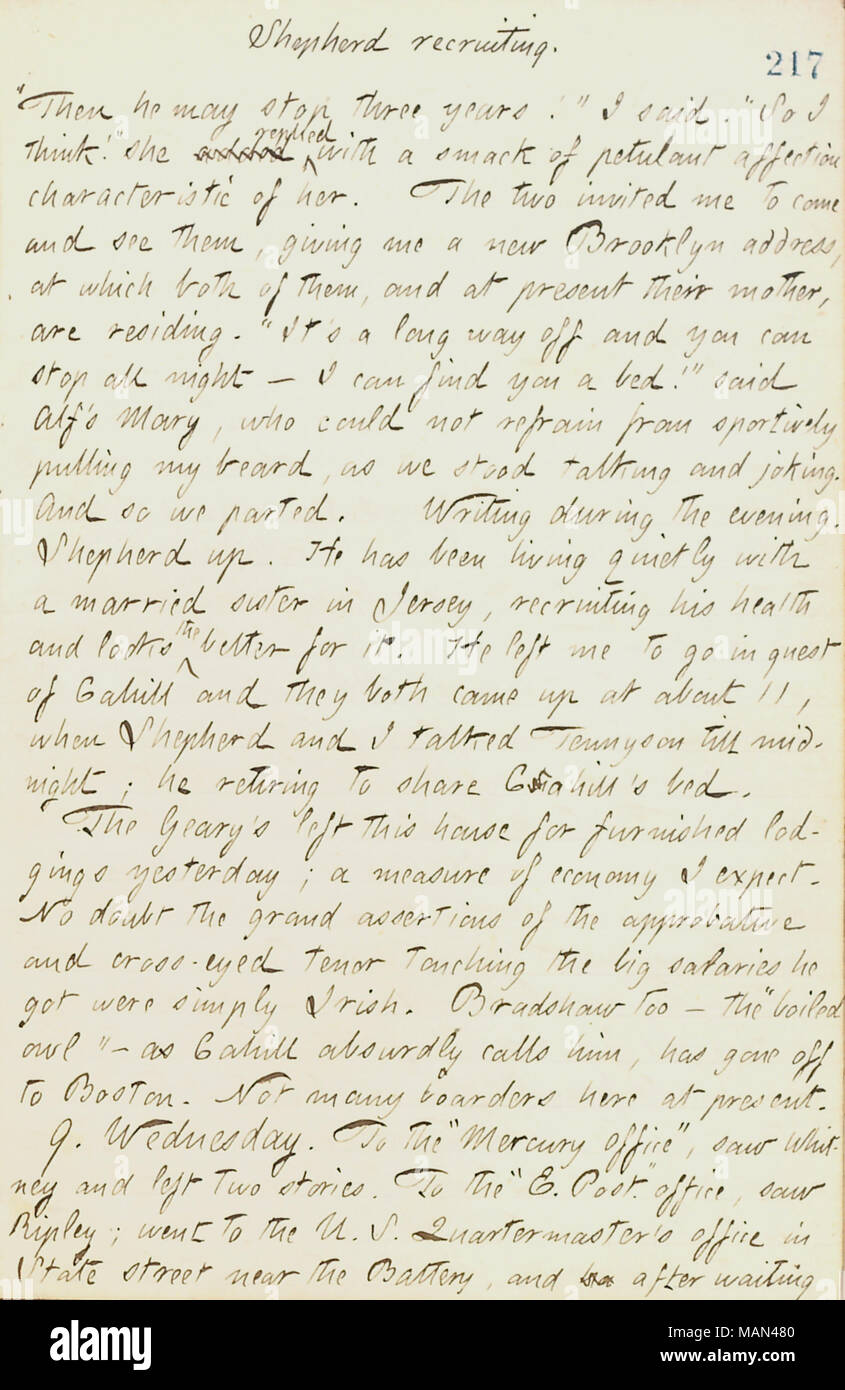 Shepherd recruiting.
217
"Then he may stop three years!" I said. "So I
think!" she added replied with a smack of petulant affection
characteristic of her. The two invited me to come
and see them, giving me a new Brooklyn address,
at which both of them, and at present their mother,
are residing. "It's a long way off and you can
stop all night — I can find you a bed!" said
Alf's Mary, who could not refrain from sportively
pulling my beard, as we stood talking and joking.
And so we parted. Writing during the evening.
Shepherd up. He has been living quietly with
a married sister in Jersey, recruiting his health
and looks the better for it. He left me to go in quest
of Cahill and they both came up at about 11,
when Shepherd and I talked Tennyson till mid-
night; he retiring to share Cahill's bed.
The Geary's left this house for furnished lod-
gings yesterday; a measure of economy I expect.
No doubt the grand assertions of the approbative
and cross-eyed tenor touching the big salaries he
got were simply Irish. Bradshaw too — the "boiled
owl" — as Cahill absurdly calls him, has gone off
to Boston. Not many boarders here at present.
9. Wednesday. To the "Mercury office", saw Whit-
ney and left two stories. To the "E. Post." office, saw
Ripley; went to the U. S. Quartermaster's office in
State street near the Battery, and after waiting
alamy
Image ID: MAN480
www.alamy.com